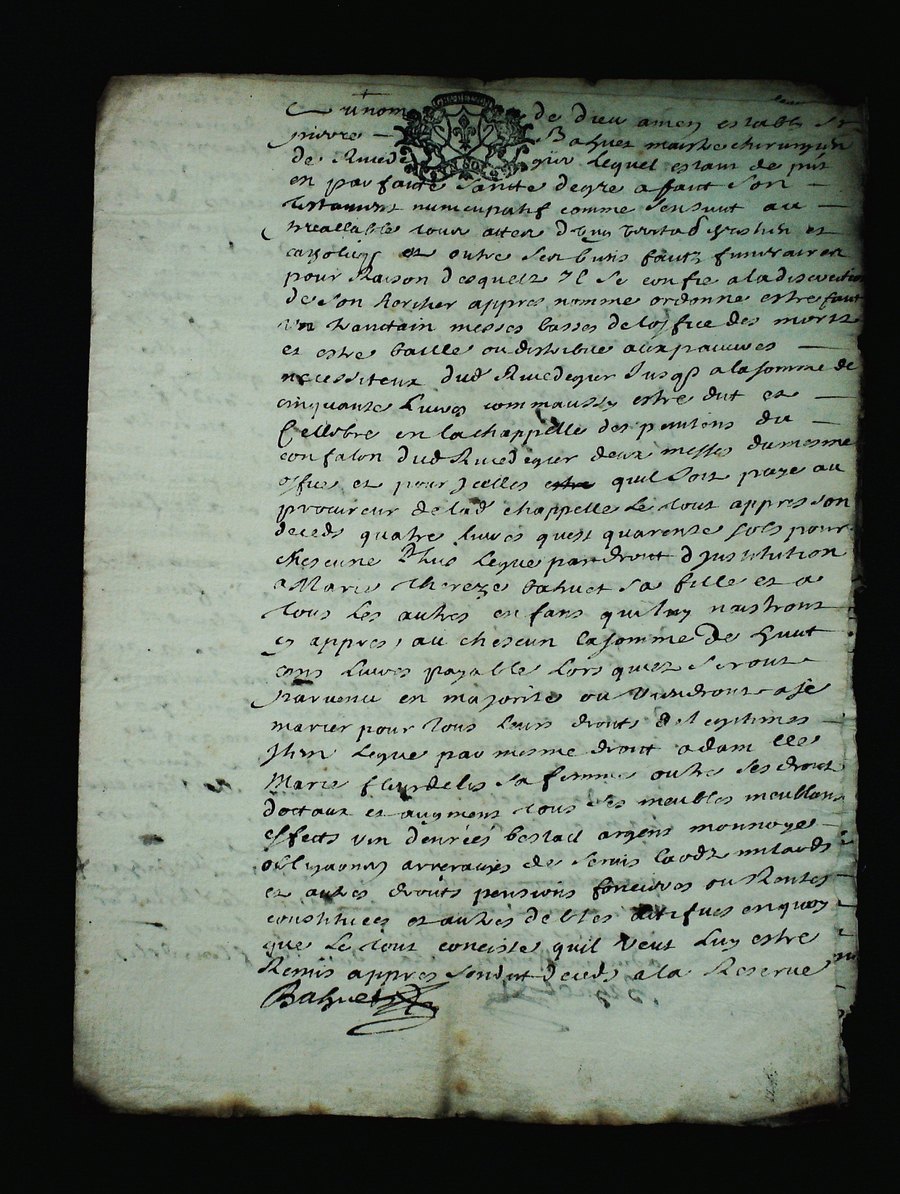 Au nom de dieu amen estably Sr
pierre Bahuet maistre chirurgien
de Rivedegier lequel estant de pnt
en parfaite sante de gre a faict son
testament nuncupatif comme sensuit au
preallable tout acte dung vray chrestien et
catholicq et outre ses biens faicts funeraires
pour Raison desquels Il se confie a la discretion
de son heritier appres nomme ordonne estre faict
un trantain messes basses de loffice des morts
et estre baille ou distribue aux pauvres
necessiteux dud Rivedegier Jusqs a la somme de
cinquante Livres comm aussy estre dit et
Cellebre en la chappelle des penitens du
confalon dud Rivedegier deux messes du mesme
office et pour Icelles quil soit paye au
procureur de lad chappelle Le tout appres son
deceds quatre livres quest quarente sols pour
chescune Plus legue par droict dinstitution
a Marie thereze bahuet sa fille et a
tous les autres enfans qui luy naistront
cy appres, au chescun la somme de huict
cens Livres payable lors quils seront
parvenu en majorite ou viendront a se
marier pour tous leurs droits de legitimes
Item legue par mesme droict a dam lle
Marie fleurdelis sa femme outre ses droits
dottaux et augment tous ses meubles meublans
effects vin denrées bestail argent monnoye
obligations arrerages de servis laodz milaods
et autres droits pensions foncieres ou Rentes
constituées et autres debtes actifves en quoy
que le tout conciste quil veut luy estre
Remis appres sondit deceds a la Reserve
Bahuet